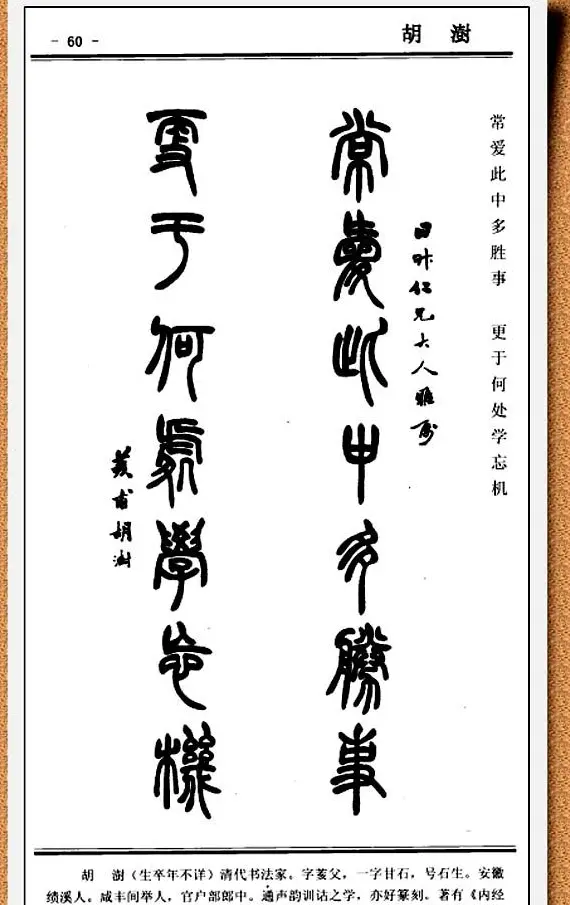 - 60 -
胡 澍
常爱此中多胜事 更于何处学忘机
仁兄大人雅屬
常愛此中多勝事
更于何處學忘機
荄甫胡澍
胡 澍（生卒年不详）清代书法家。字荄父，一字甘石，号石生。安徽
绩溪人。咸丰间举人，官户部郎中。通声韵训诂之学，亦好篆刻。著有《内经